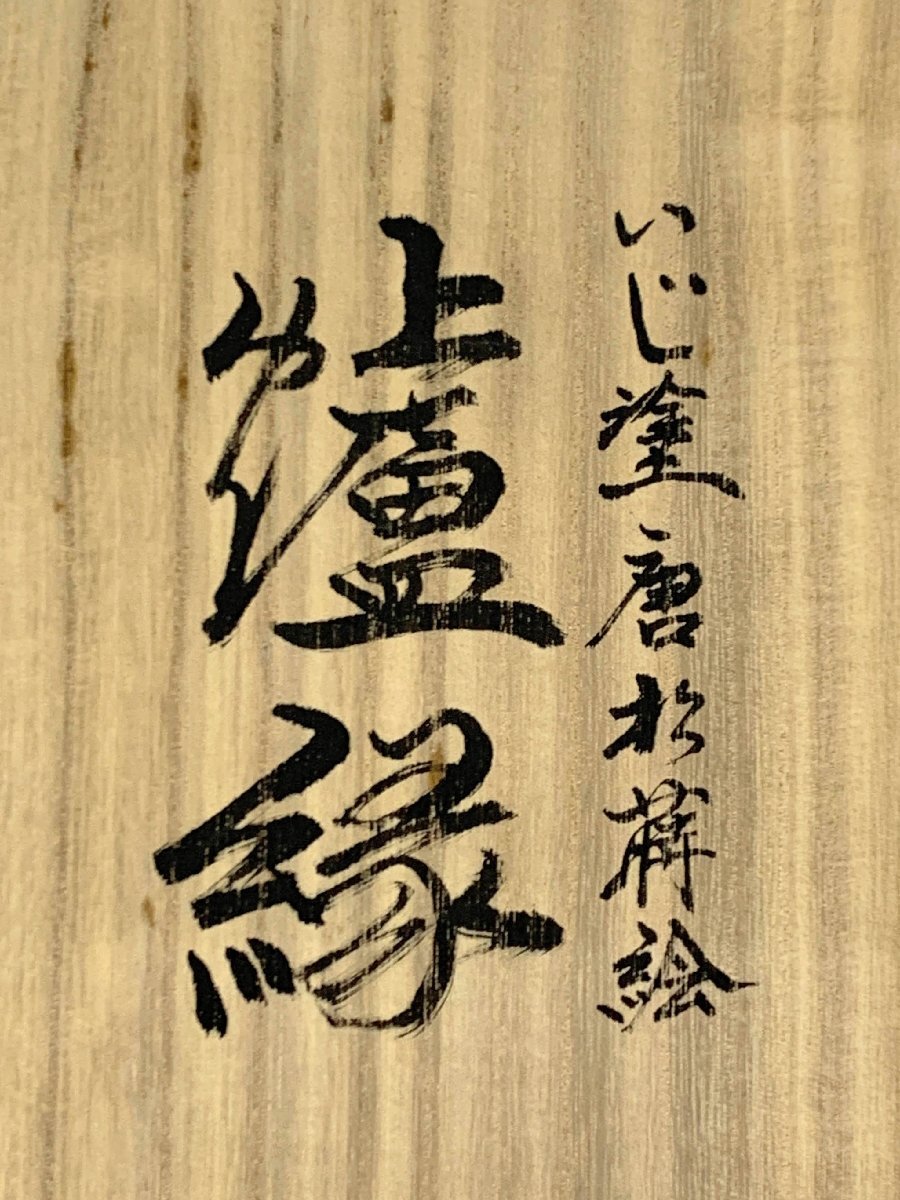 いじ塗唐松蒔絵
爐縁